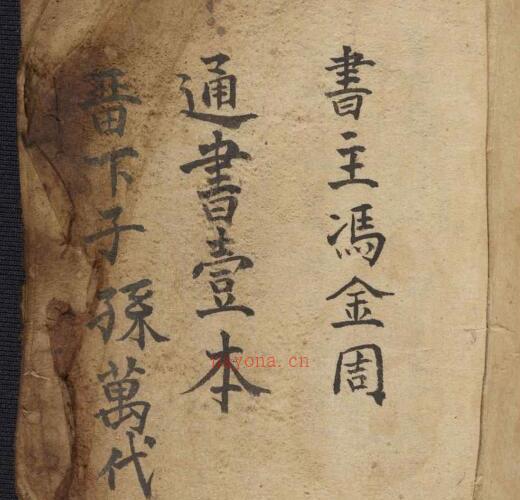 書主馮金周
通書壹本
畨下子孫萬代
nayona.cn